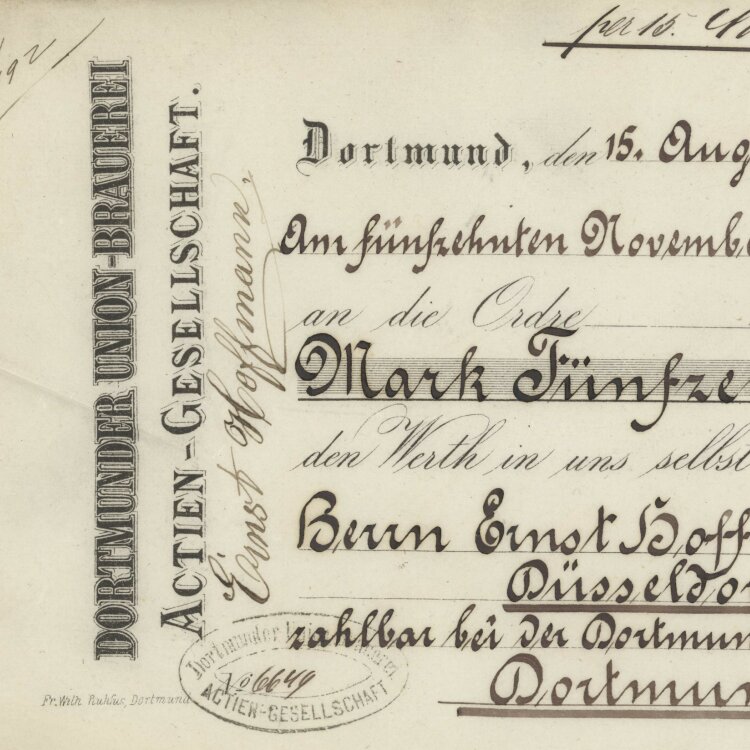 per 15.
DORTMUNDER UNION-BRAUEREI
ACTIEN-GESELLSCHAFT.
Ernst Hoffmann.
Dortmund, den 15. Aug
Am fünfzehnten Novembe
an die Ordre
Mark Fünfze
den Werth in uns selbst
Herrn Ernst Hoff
Düsseldor
zahlbar bei der Dortmun
Dortmun
Dortmunder Union
No 6649
ACTIEN-GESELLSCHAFT
Fr. Wilh. Ruhfus, Dortmund